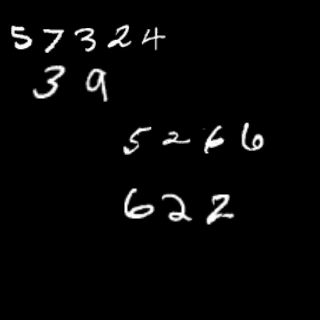 57324
39
5266
622